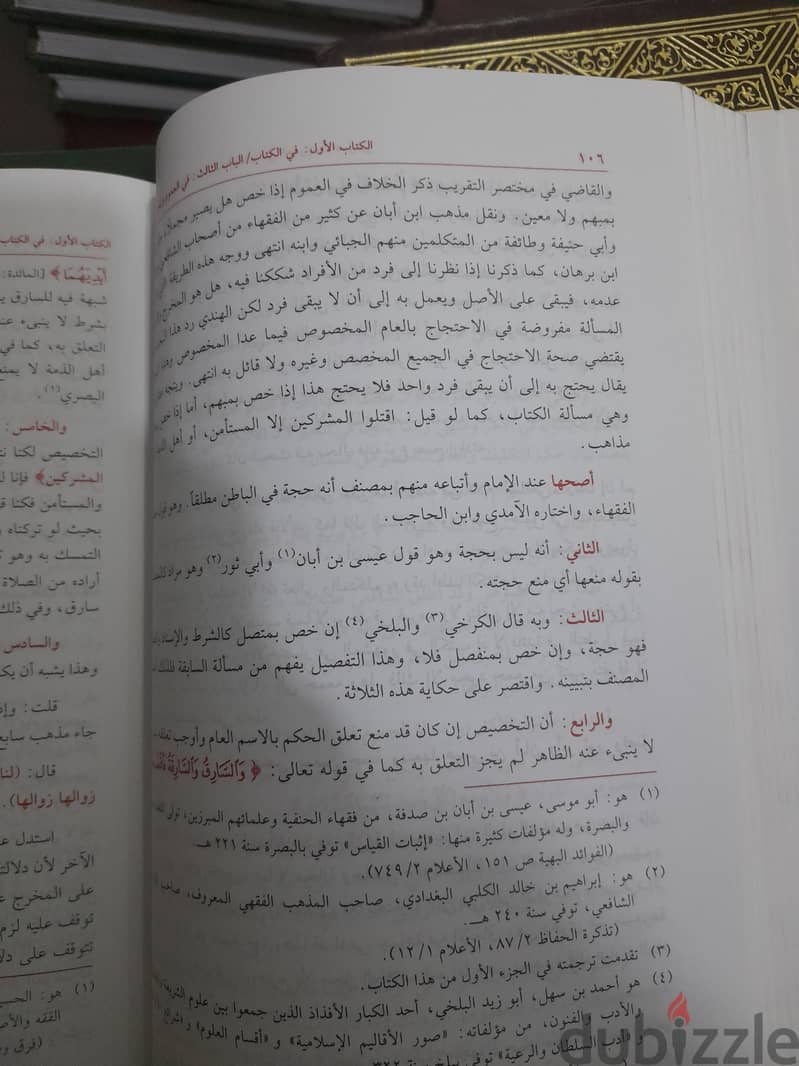 ١٠٦
الكتاب الأول: في الكتاب/ الباب الثالث: في العموم
والقاضي في مختصر التقريب ذكر الخلاف في العموم إذا خص هل يصير مجملاً
بمبهم ولا معين. ونقل مذهب ابن أبان عن كثير من الفقهاء من أصحاب الشافعي
وأبي حنيفة وطائفة من المتكلمين منهم الجبائي وابنه انتهى ووجه هذه الطريقة
ابن برهان، كما ذكرنا إذا نظرنا إلى فرد من الأفراد شككنا فيه، هل هو المخرج
عدمه، فيبقى على الأصل ويعمل به إلى أن لا يبقى فرد لكن الهندي رد هذا
المسألة مفروضة في الاحتجاج بالعام المخصوص فيما عدا المخصوص وهذا
يقتضي صحة الاحتجاج في الجميع المخصص وغيره ولا قائل به انتهى. ويتجه
يقال يحتج به إلى أن يبقى فرد واحد فلا يحتج هذا إذا خص بمبهم، أما إذا خص
وهي مسألة الكتاب، كما لو قيل: اقتلوا المشركين إلا المستأمن، أو أهل
مذاهب.
أصحها عند الإمام وأتباعه منهم بمصنف أنه حجة في الباطن مطلقاً. وهو
الفقهاء، واختاره الآمدي وابن الحاجب.
الثاني: أنه ليس بحجة وهو قول عيسى بن أبان(١) وأبي ثور(٢) وهو مراد
بقوله منعها أي منع حجته.
الثالث: وبه قال الكرخي(٣) والبلخي(٤) إن خص بمتصل كالشرط والاستثناء
فهو حجة، وإن خص بمنفصل فلا، وهذا التفصيل يفهم من مسألة السابقة
المصنف بتبيينه. واقتصر على حكاية هذه الثلاثة.
والرابع: أن التخصيص إن كان قد منع تعلق الحكم بالاسم العام وأوجب تعلقه
لا ينبىء عنه الظاهر لم يجز التعلق به كما في قوله تعالى: ﴿وَالسَّارِقُ وَالسَّارِقَةُ
(١) هو: أبو موسى، عيسى بن أبان بن صدفة، من فقهاء الحنفية وعلمائهم المبرزين، تولى
والبصرة، وله مؤلفات كثيرة منها: «إثبات القياس» توفي بالبصرة سنة ٢٢١ هـ.
(الفوائد البهية ص ١٥١، الأعلام ٢/ ٧٤٩).
(٢) هو: إبراهيم بن خالد الكلبي البغدادي، صاحب المذهب الفقهي المعروف، صاحب
الشافعي، توفي سنة ٢٤٠ هـ.
(تذكرة الحفاظ ٢/ ٨٧، الأعلام ١/ ١٢).
(٣) تقدمت ترجمته في الجزء الأول من هذا الكتاب.
(٤) هو أحمد بن سهل، أبو زيد البلخي، أحد الكبار الأفذاذ الذين جمعوا بين علوم الشريعة
والأدب والفنون، من مؤلفاته: «صور الأقاليم الإسلامية» و «أقسام العلوم» و
و «أدب السلطان والرعية» توفي ببلخ سنة ٣٢٢
الكتاب الأول: في الكتاب
أَيْدِيَهُمَا﴾ [المائدة:
شبهة فيه للسارق
بشرط لا ينبىء
التعلق به، كما في
أهل الذمة لا يمنع
البصري(١).
والخامس:
التخصيص لكنا
المشركين﴾ فإنا
والمستأمن فكنا
بحيث لو تركناه
التمسك به وهو
أراده من الصلاة
سارق، وفي ذلك
والسادس
وهذا يشبه أن
قلت: وإذ
جاء مذهب سابع
قال: (لنا
زوالها زوالها).
استدل
الآخر لأن دلالته
على المخرج
توقف عليه لزم
تتوقف على
(١) هو: الحسين
الفقه والأصول
(فرق
dubizzle